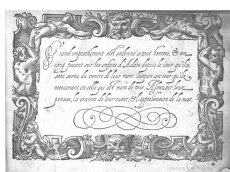 Grand empeschement est ordonné a tout homme, & un
joug pesant sur les enfans d'Adam depuis le iour qu'ils
sont sortis du ventre de leur mere, iusques au iour qu'ilz
retournent en celle qui est mere de tous. Asscavoir leur
pensee, la crainte de leur coeur, & l'apprehension de la mort.